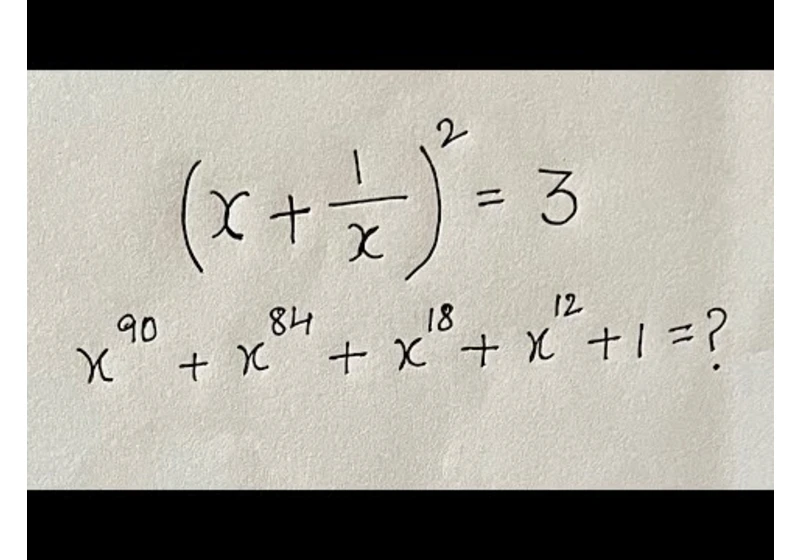 (x + 1/x)² = 3
x⁹⁰ + x⁸⁴ + x¹⁸ + x¹² + 1 = ?